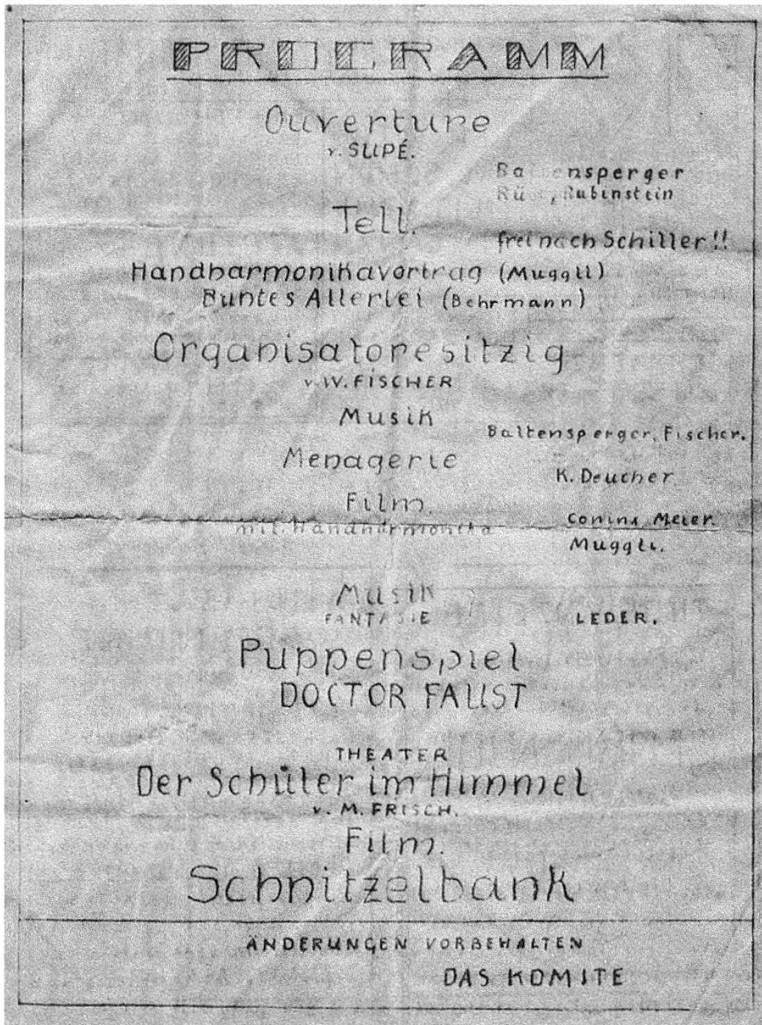 PROGRAMM
Ouverture
v. SUPÉ.
Baltensperger
Rubinstein
Tell.
frei nach Schiller!!
Handharmonikavortrag (Muggli)
Buntes Allerlei (Behrmann)
Organisatoresitzig
v. W. FISCHER
Musik
Baltensperger, Fischer.
Menagerie
K. Deucher
Film.
Meier.
mit Handharmonika
Muggli.
Musik
FANTASIE
LEDER.
Puppenspiel
DOCTOR FAUST
THEATER
Der Schüler im Himmel
v. M. FRISCH.
Film.
Schnitzelbank
ÄNDERUNGEN VORBEHALTEN
DAS KOMITE